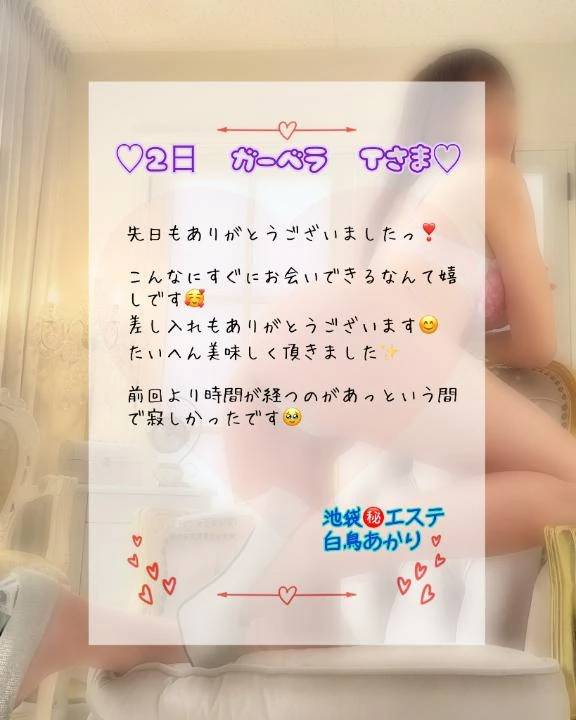 ♡2日 ガーベラ Tさま♡
先日もありがとうございましたっ❣️
こんなにすぐにお会いできるなんて嬉
しです🥰
差し入れもありがとうございます😊
たいへん美味しく頂きました✨
前回より時間が経つのがあっという間
で寂しかったです🥹
池袋㊙️エステ
白鳥あかり